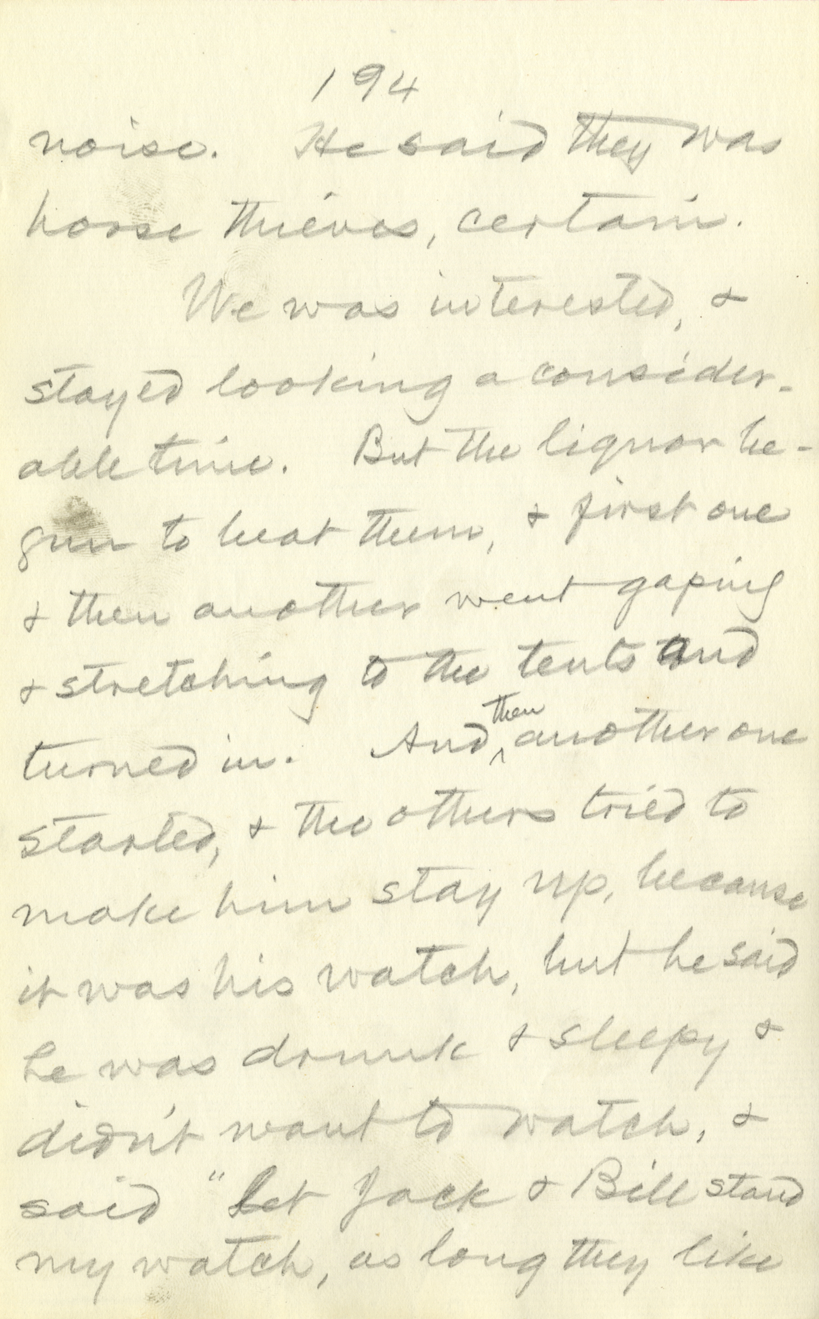 194
noise. He said they was
horse thieves, certain.
We was interested, &
stayed looking a consider-
able time. But the liquor be-
gun to beat them, & first one
& then another went gaping
& stretching to the tents and
turned in. And then another one
started, & the others tried to
make him stay up, because
it was his watch, but he said
he was drunk & sleepy &
didn't want to watch, &
said "Let Jack & Bill stand
my watch, as long they like